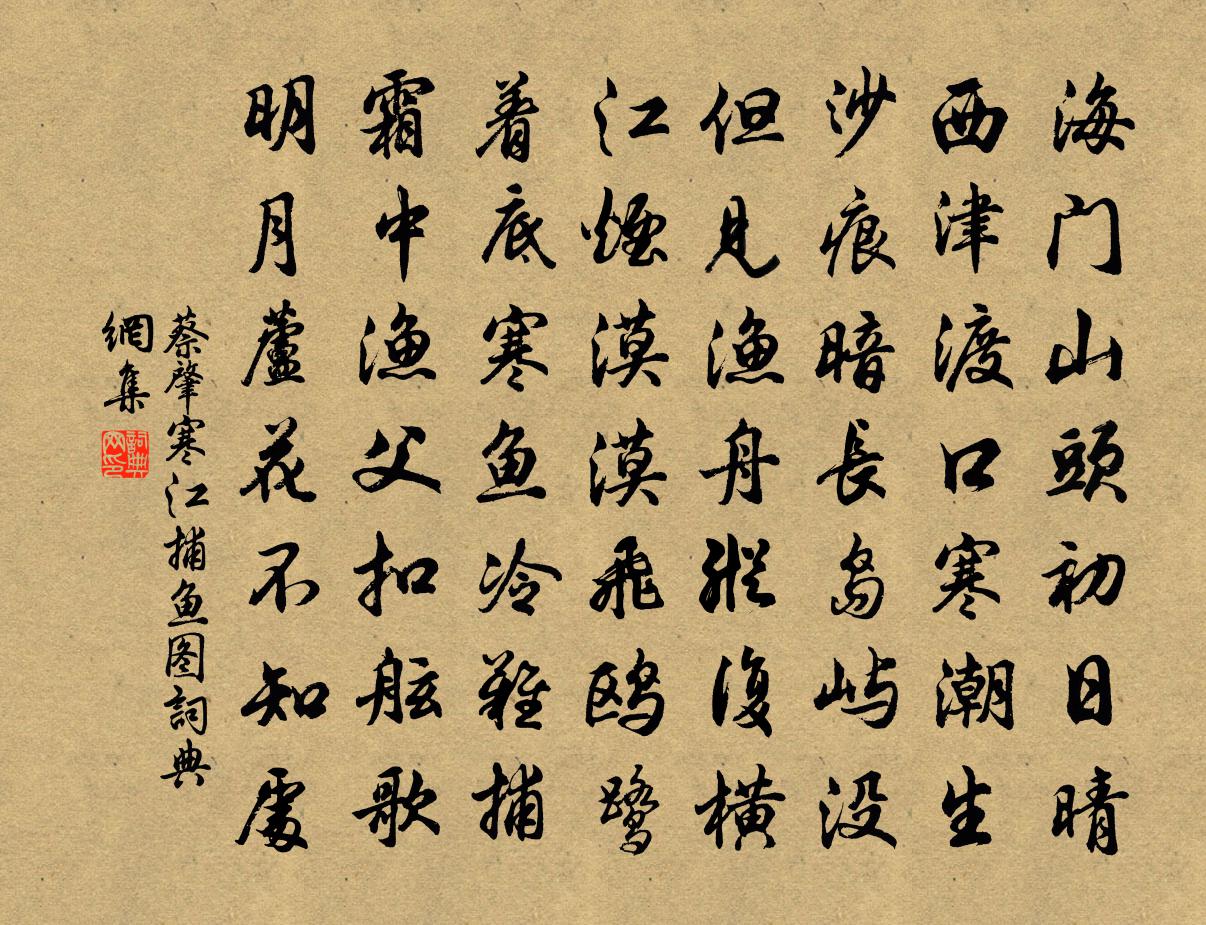 海门山頭初日晴
西津渡口寒潮生
沙痕暗長岛屿没
但見渔舟縱復横
江煙漠漠飛鸥鹭
着底寒鱼冷難捕
霜中渔父扣舷歌
明月蘆花不知處
蔡肇寒江捕鱼图詞典
網集
詞典
网印